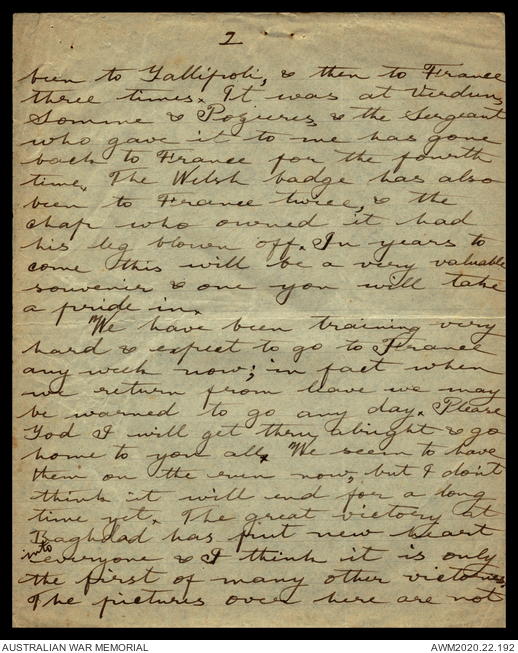 2
been to Gallipoli, & then to France
three times. It was at Verdun,
Somme & Pozieres & the Sergeant
who gave it to me has gone
back to France for the fourth
time. The Welsh badge has also
been to France twice, & the
chap who owned it had
his leg blown off. In years to
come this will be a very valuable
souvenir & one you will take
a pride in.
We have been training very
hard & expect to go to France
any week now; in fact when
we return from leave we may
be warned to go any day. Please
God I will get thru alright & go
home to you all. We seem to have
them on the run now, but I don't
think it will end for a long
time yet. The great victory at
Baghdad has put new heart
into everyone & I think it is only
the first of many other victories.
The pictures over here are not
AUSTRALIAN WAR MEMORIAL
AWM2020.22.192